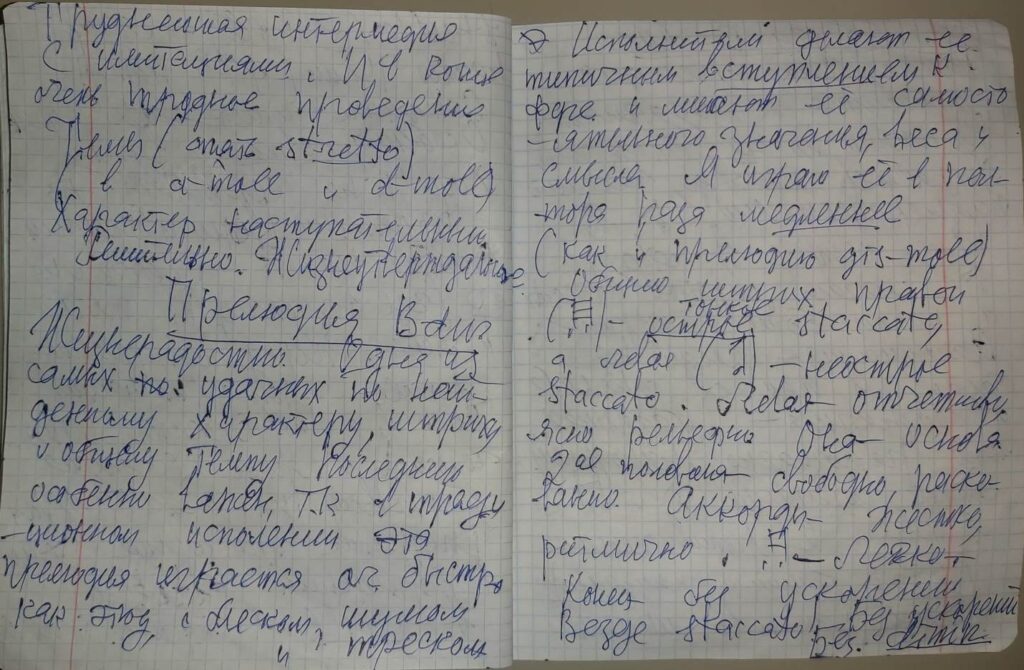 Труднейшая интермедия
с имитациями. И в конце
очень трудное проведение
Темы (опять stretto)
(в a-moll и d-moll)
Характер наступательный
Решительно. Жизнеутверждающе.
Прелюдия B dur
Жизнерадостно. Одна из
самых по удачных по най-
денному характеру, штриху
и общему темпу. Последний
особенно важен, т.к. в тради
-ционном исполении эта
прелюдия играется оч. быстро
как этюд, с блеском, шумом
и треском
Исполнители делают её
типичным вступлением к
фуге и лишают её самосто
-ятельного значения, веса и
смысла. Я играю её в пол-
тора раза медленнее
(как и прелюдию dis-moll)
Обычно штрих правой
тонкое
- острое staccato,
а левая - неострое
staccato. Левая отчетливо,
ясно рельефно. Она основа.
2ая половина свободно, раско-
ванно. Аккорды - жестко,
ритмично. - Легко
Конец без ускорений
Везде staccato, Без ускорений
Без